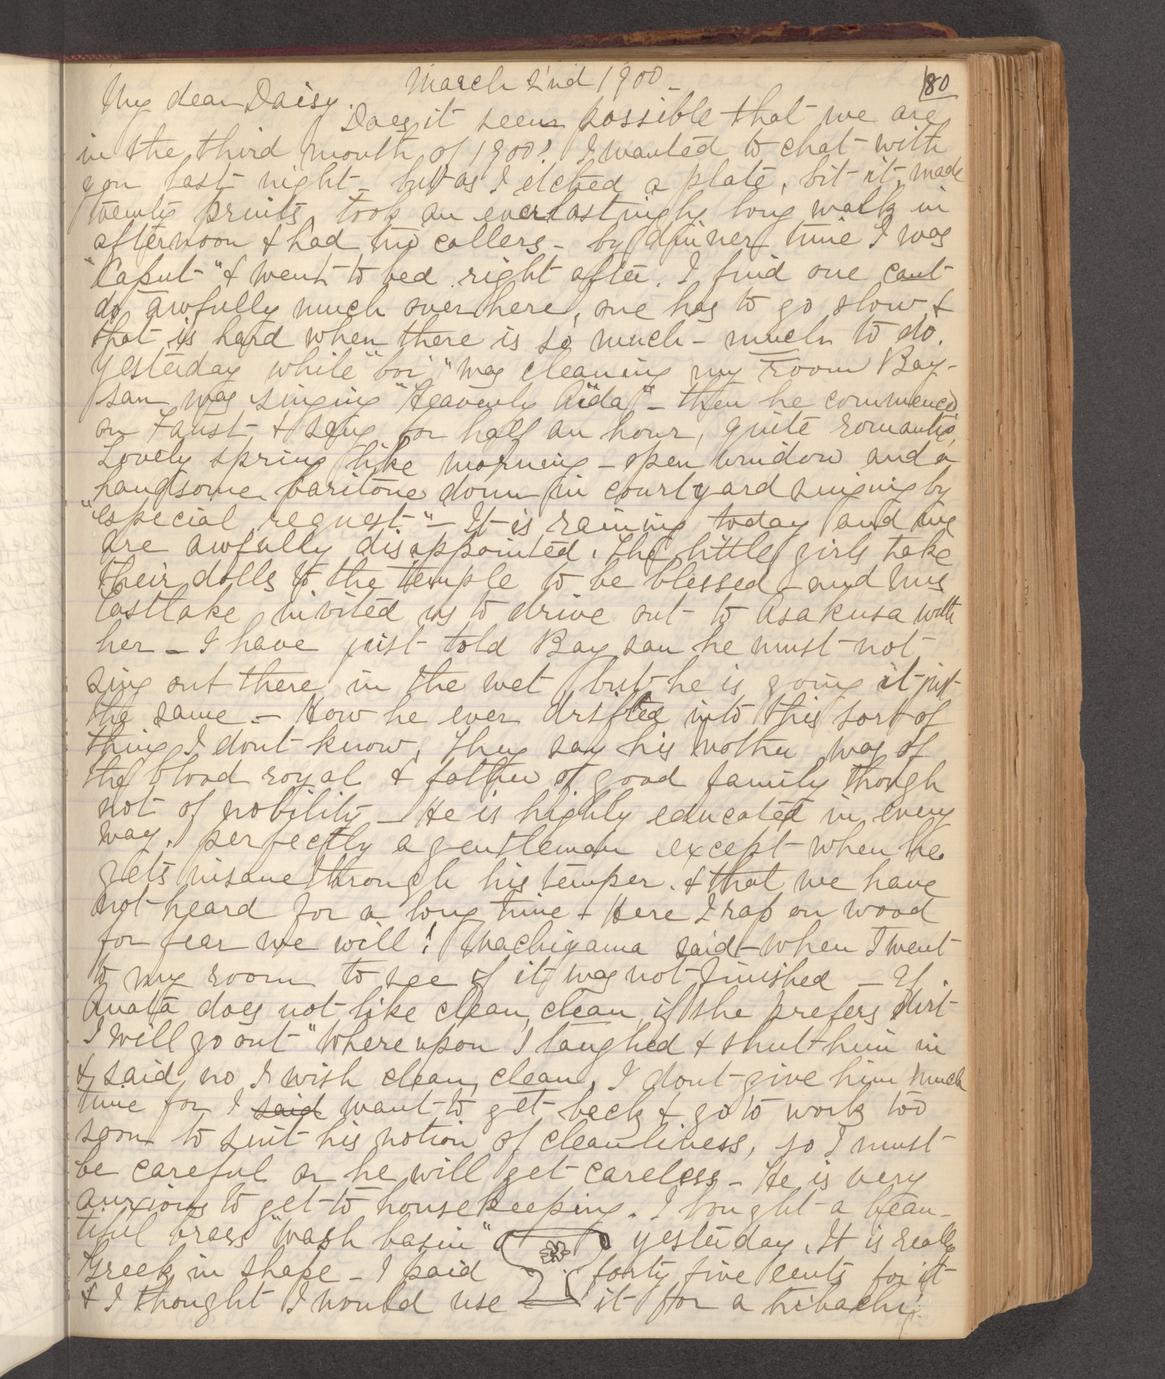 March 2nd 1900 -
180
My dear Daisy.
Does it seem possible that we are
in the third month of 1900! I wanted to chat with
you last night - but as I etched a plate, bit it, made
twenty prints, took an everlastingly long walk in
afternoon & had two callers - by dinner time I was
"Caput" & went to bed right after. I find one cant
do awfully much over here, one has to go slow &
that is hard when there is so much - much to do.
Yesterday while "boi" was cleaning my room Bay-
san was singing "Heavenly Aïda" - then he commenced
on Faust & sang for half an hour, quite romantic,
Lovely spring like morning - open window and a
handsome baritone down in courtyard singing by
"especial request" - It is raining today and we
are awfully disappointed. The little girls take
their dolls to the temple to be blessed - and Mrs
Eastlake invited us to drive out to Asakusa with
her - I have just told Bay san he must not
sing out there in the wet but he is going it just
the same - How he ever drifted into this sort of
thing I dont know, They say his mother was of
the blood royal & father of good family though
not of nobility - He is highly educated in every
way, perfectly a gentleman except when he
gets insane through his temper. & that we have
not heard for a long time - Here I rap on wood
for fear we will! Machiyama said when I went
to my room to see if it was not finished - "If
Anata does not like clean, clean, if she prefers dirt
I will go out" Whereupon I laughed & shut him in
& said no I wish clean, clean, I dont give him much
time for I said want to get back & go to work too
soon to suit his notion of cleanliness, so I must
be careful or he will get careless - He is very
anxious to get to housekeeping. I bought a beau-
tiful brass "wash basin" yesterday. It is really
Greek in shape - I paid forty five cents for it
& I thought I would use it for a hibachi